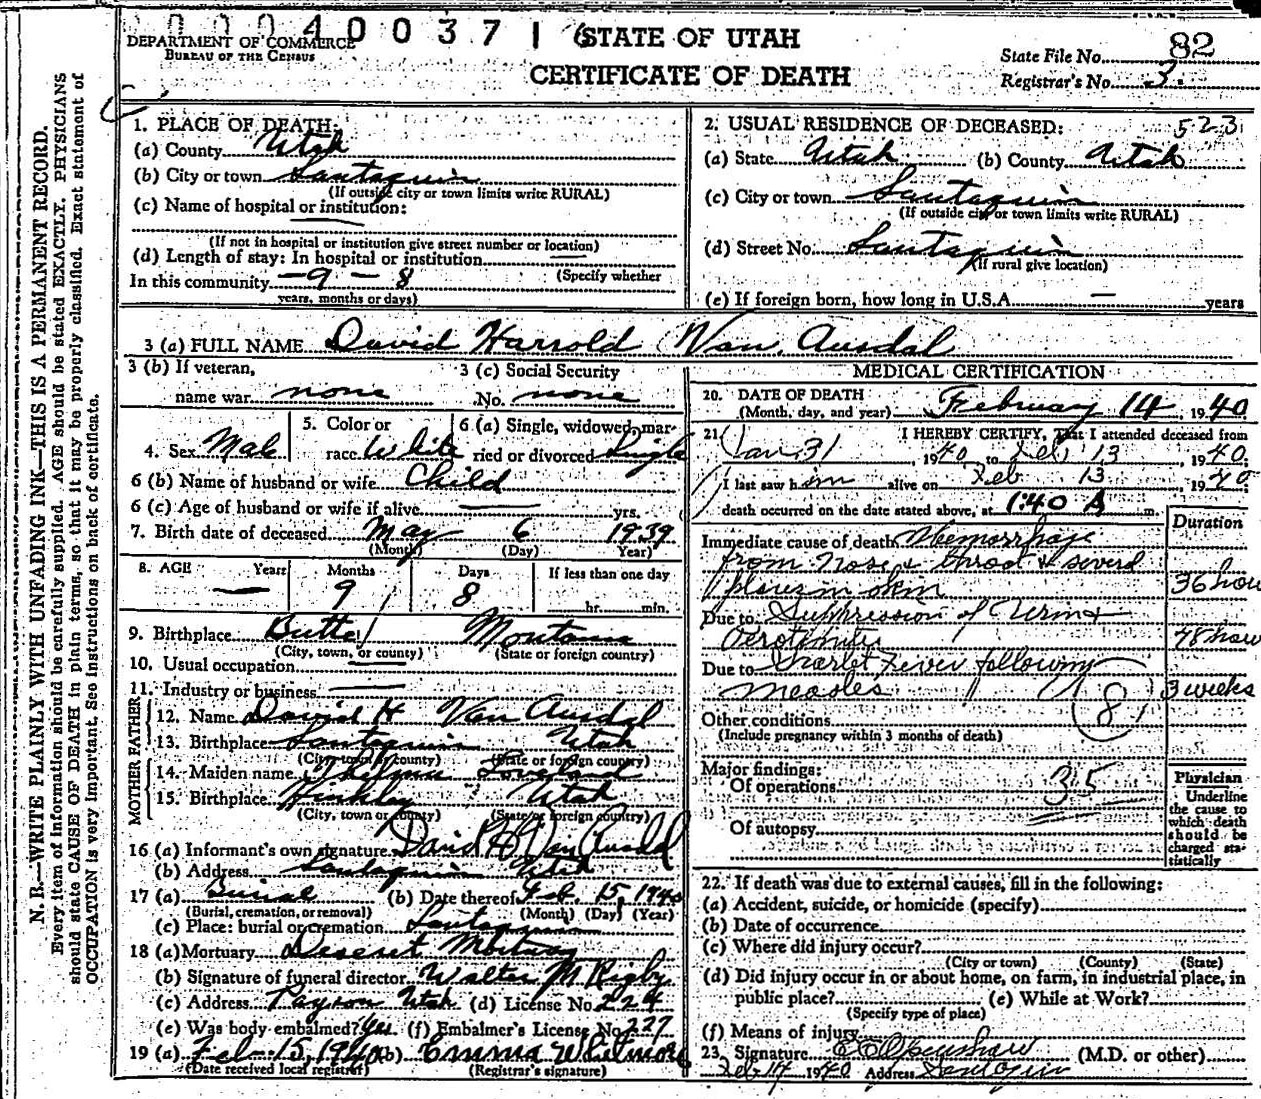 0 0 0 0 4 0 0 3 7 1 6
DEPARTMENT OF COMMERCE
BUREAU OF THE CENSUS
STATE OF UTAH
CERTIFICATE OF DEATH
State File No. 82
Registrar's No. 3.
N. B.—WRITE PLAINLY WITH UNFADING INK—THIS IS A PERMANENT RECORD.
Every item of information should be carefully supplied. AGE should be stated EXACTLY. PHYSICIANS
should state CAUSE OF DEATH in plain terms, so that it may be properly classified. Exact statement of
OCCUPATION is very important. See instructions on back of certificate.
1. PLACE OF DEATH:
(a) County Utah
(b) City or town Santaquin
(If outside city or town limits write RURAL)
(c) Name of hospital or institution:
(If not in hospital or institution give street number or location)
(d) Length of stay: In hospital or institution —
(Specify whether
In this community — 9 — 8
years, months or days)
2. USUAL RESIDENCE OF DECEASED: 523
(a) State Utah (b) County Utah
(c) City or town Santaquin
(If outside city or town limits write RURAL)
(d) Street No. Santaquin
(If rural give location)
(e) If foreign born, how long in U.S.A. — years
3 (a) FULL NAME David Harrold Van Ausdal
3 (b) If veteran,
name war none
3 (c) Social Security
No. none
4. Sex Male
5. Color or
race White
6 (a) Single, widowed, mar-
ried or divorced Single
6 (b) Name of husband or wife Child
6 (c) Age of husband or wife if alive — yrs.
7. Birth date of deceased May 6 1939
(Month) (Day) (Year)
8. AGE Years Months Days If less than one day
— 9 8 hr. min.
9. Birthplace Butte Montana
(City, town, or county) (State or foreign country)
10. Usual occupation —
11. Industry or business —
FATHER
12. Name David H Van Ausdal
13. Birthplace Santaquin Utah
(City, town or county) (State or foreign country)
MOTHER
14. Maiden name Thelma Loveland
15. Birthplace Hinkley Utah
(City, town or county) (State or foreign country)
16 (a) Informant's own signature David H Van Ausdal
(b) Address Santaquin Utah
17 (a) Burial (b) Date thereof Feb. 15, 1940
(Burial, cremation, or removal) (Month) (Day) (Year)
(c) Place: burial or cremation Santaquin
18 (a) Mortuary Deseret Mortuary
(b) Signature of funeral director Walter M. Rigby
(c) Address Payson Utah (d) License No. 224
(e) Was body embalmed? Yes. (f) Embalmer's License No. 227
19 (a) Feb—15, 1940 (b) Emma Whitmore
(Date received local registrar) (Registrar's signature)
MEDICAL CERTIFICATION
20. DATE OF DEATH
(Month, day, and year) February 14, 1940.
21. I HEREBY CERTIFY, That I attended deceased from
Jan 31, 1940 to Feb 13, 1940.
I last saw him alive on Feb 13, 1940
death occurred on the date stated above, at 1:40 A m.
Duration
Immediate cause of death Hemorrhage
from nose & throat & several
places in skin 36 hour
Due to Suppression of Urine
48 hour
Due to Scarlet Fever following
measles 3 weeks
(8)
Other conditions
(Include pregnancy within 3 months of death)
Major findings:
Of operations 35
Of autopsy
Physician
Underline
the cause to
which death
should be
charged sta-
tistically
22. If death was due to external causes, fill in the following:
(a) Accident, suicide, or homicide (specify)
(b) Date of occurrence
(c) Where did injury occur?
(City or town) (County) (State)
(d) Did injury occur in or about home, on farm, in industrial place, in
public place? (e) While at Work?
(Specify type of place)
(f) Means of injury
23. Signature (M.D. or other)
Feb 14 1940 Address Santaquin